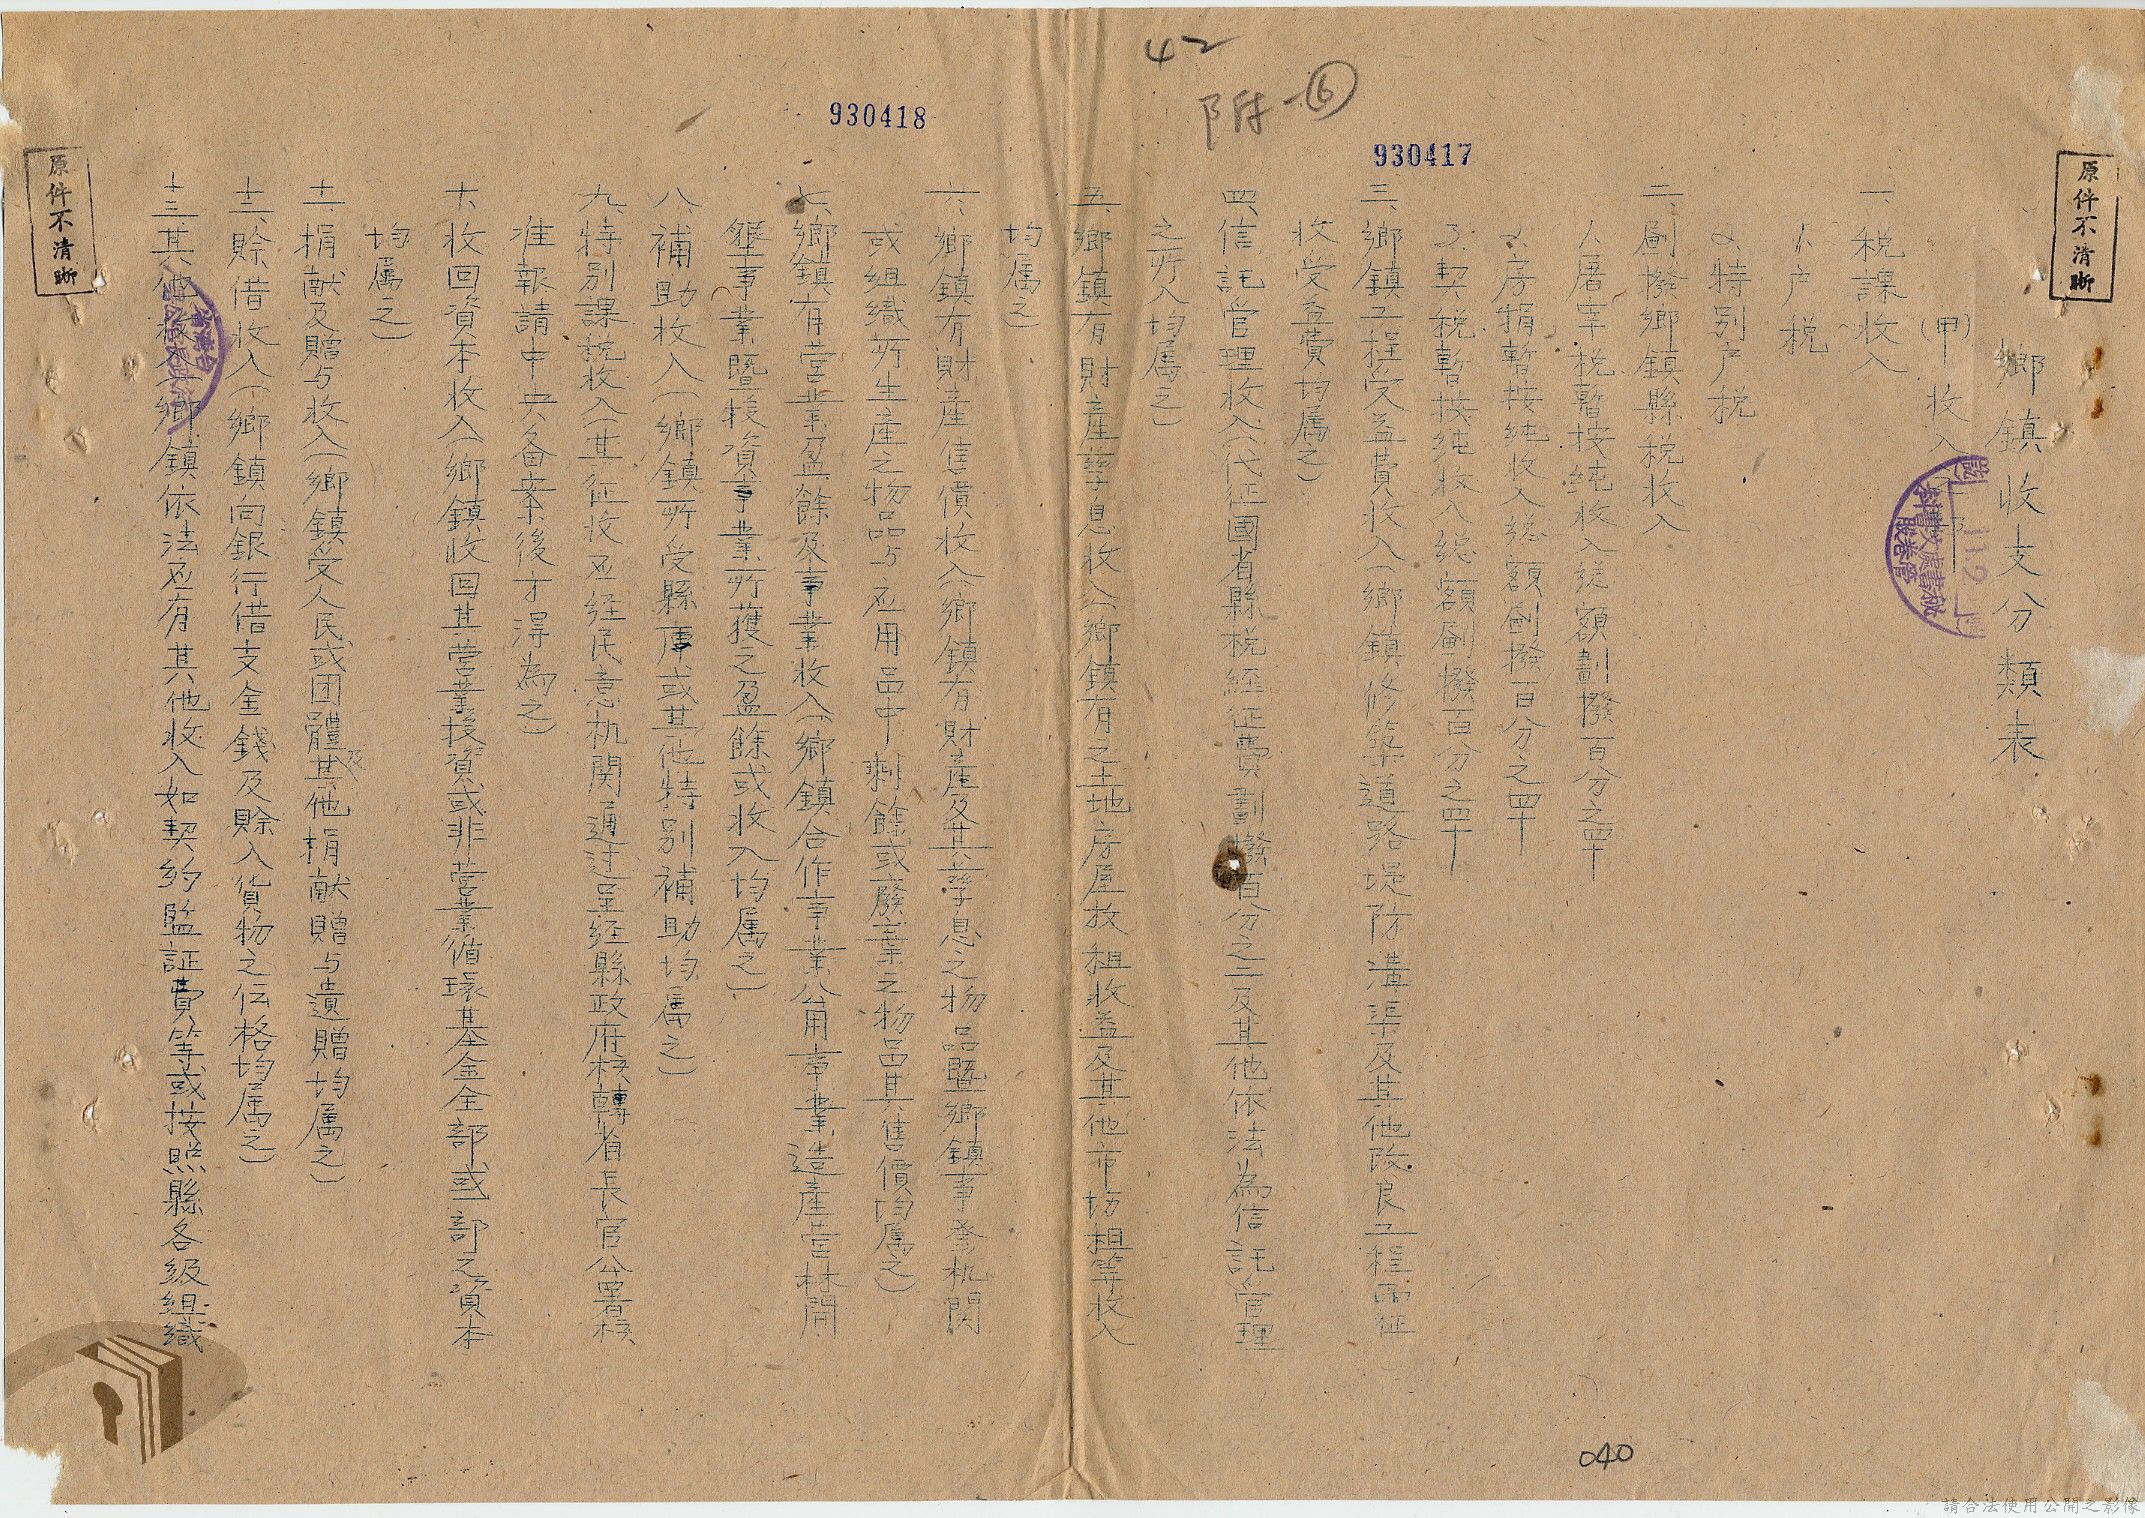 42
附-⑥
930417
930418
原件不清晰
鄉鎮收支分類表
(甲)收入
一、稅課收入
1.户稅
2.特别户稅
二、劃撥鄉鎮縣稅收入
1.屠宰稅暫按純收入總額劃撥百分之四十
2.房捐暫按純收入總額劃撥百分之四十
3.契稅暫按純收入總額劃撥百分之四十
三、鄉鎮工程受益費收入(鄉鎮修築道路堤防溝渠及其他改良工程而征
收受益費均属之)
四、信託管理收入(代征國省縣稅經征費劃撥百分之二及其他依法為信託管理
之所入均属之)
五、鄉鎮有財産孳息收入(鄉鎮有之土地房屋放租收益及其他市場租等收入
均属之)
六、鄉鎮有財産售價收入(鄉鎮有財産及其孳息之物品暨鄉鎮事務机関
或組織所生産之物品与应用品中剩餘或廢棄之物品其售價均属之)
七、鄉鎮有营業盈餘及事業收入(鄉鎮合作事業公用事業造產营林開
墾事業暨投資事業所獲之盈餘或收入均属之)
八、補助收入(鄉鎮所受縣庫或其他特别補助均属之)
九、特别課稅收入(其征收应经民意机関通过呈经縣政府核轉省長官公署核
准報請中央备案後才得為之)
十、收回資本收入(鄉鎮收回其营業投資或非营業循環基金全部或一部之資本
均属之)
十一、捐献及贈与收入(鄉鎮受人民或团體及其他捐献贈与遺贈均属之)
十二、賒借收入(鄉鎮向銀行借支金錢及賒入貨物之価格均属之)
十三、其他收入(鄉鎮依法应有其他收入如契約監証費等或按照縣各級組織
原件不清晰
040
請合法使用公開之影像